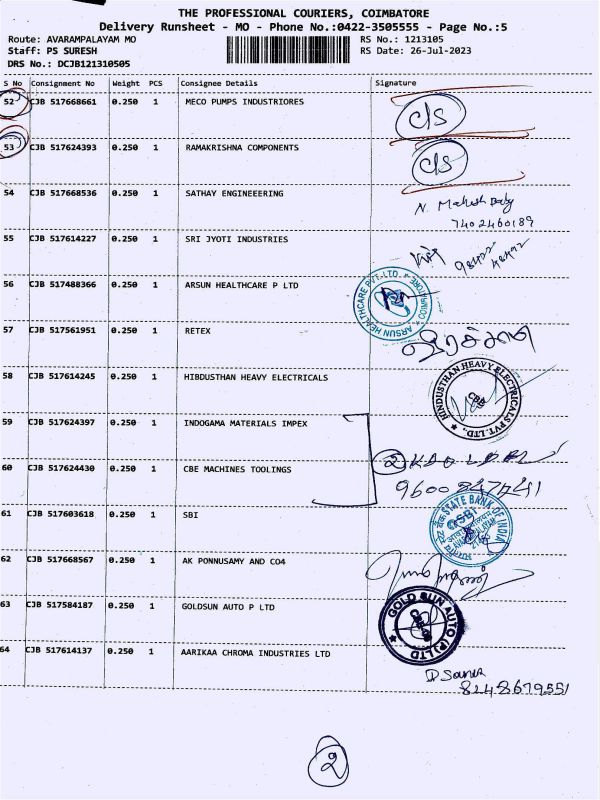 THE PROFESSIONAL COURIERS, COIMBATORE
Delivery Runsheet - MO - Phone No.:0422-3505555 - Page No.:5
Route: AVARAMPALAYAM MO RS No.: 1213105
Staff: PS SURESH RS Date: 26-Jul-2023
DRS No.: DCJB121310505
S No Consignment No Weight PCS Consignee Details Signature
52 CJB 517668661 0.250 1 MECO PUMPS INDUSTRIORES C/S
53 CJB 517624393 0.250 1 RAMAKRISHNA COMPONENTS C/S
54 CJB 517668536 0.250 1 SATHAY ENGINEEERING N. Mahesh Baby
7402460189
55 CJB 517614227 0.250 1 SRI JYOTI INDUSTRIES
56 CJB 517488366 0.250 1 ARSUN HEALTHCARE P LTD ARSUN HEALTHCARE PVT. LTD. COIMBATORE
57 CJB 517561951 0.250 1 RETEX
58 CJB 517614245 0.250 1 HIBDUSTHAN HEAVY ELECTRICALS HINDUSTHAN HEAVY ELECTRICALS PVT. LTD., CBE
59 CJB 517624397 0.250 1 INDOGAMA MATERIALS IMPEX
60 CJB 517624430 0.250 1 CBE MACHINES TOOLINGS 2
61 CJB 517603618 0.250 1 SBI STATE BANK OF INDIA SBI
62 CJB 517668567 0.250 1 AK PONNUSAMY AND CO4
63 CJB 517584187 0.250 1 GOLDSUN AUTO P LTD GOLD SUN AUTO (P) LTD
64 CJB 517614137 0.250 1 AARIKAA CHROMA INDUSTRIES LTD
8248679551
2